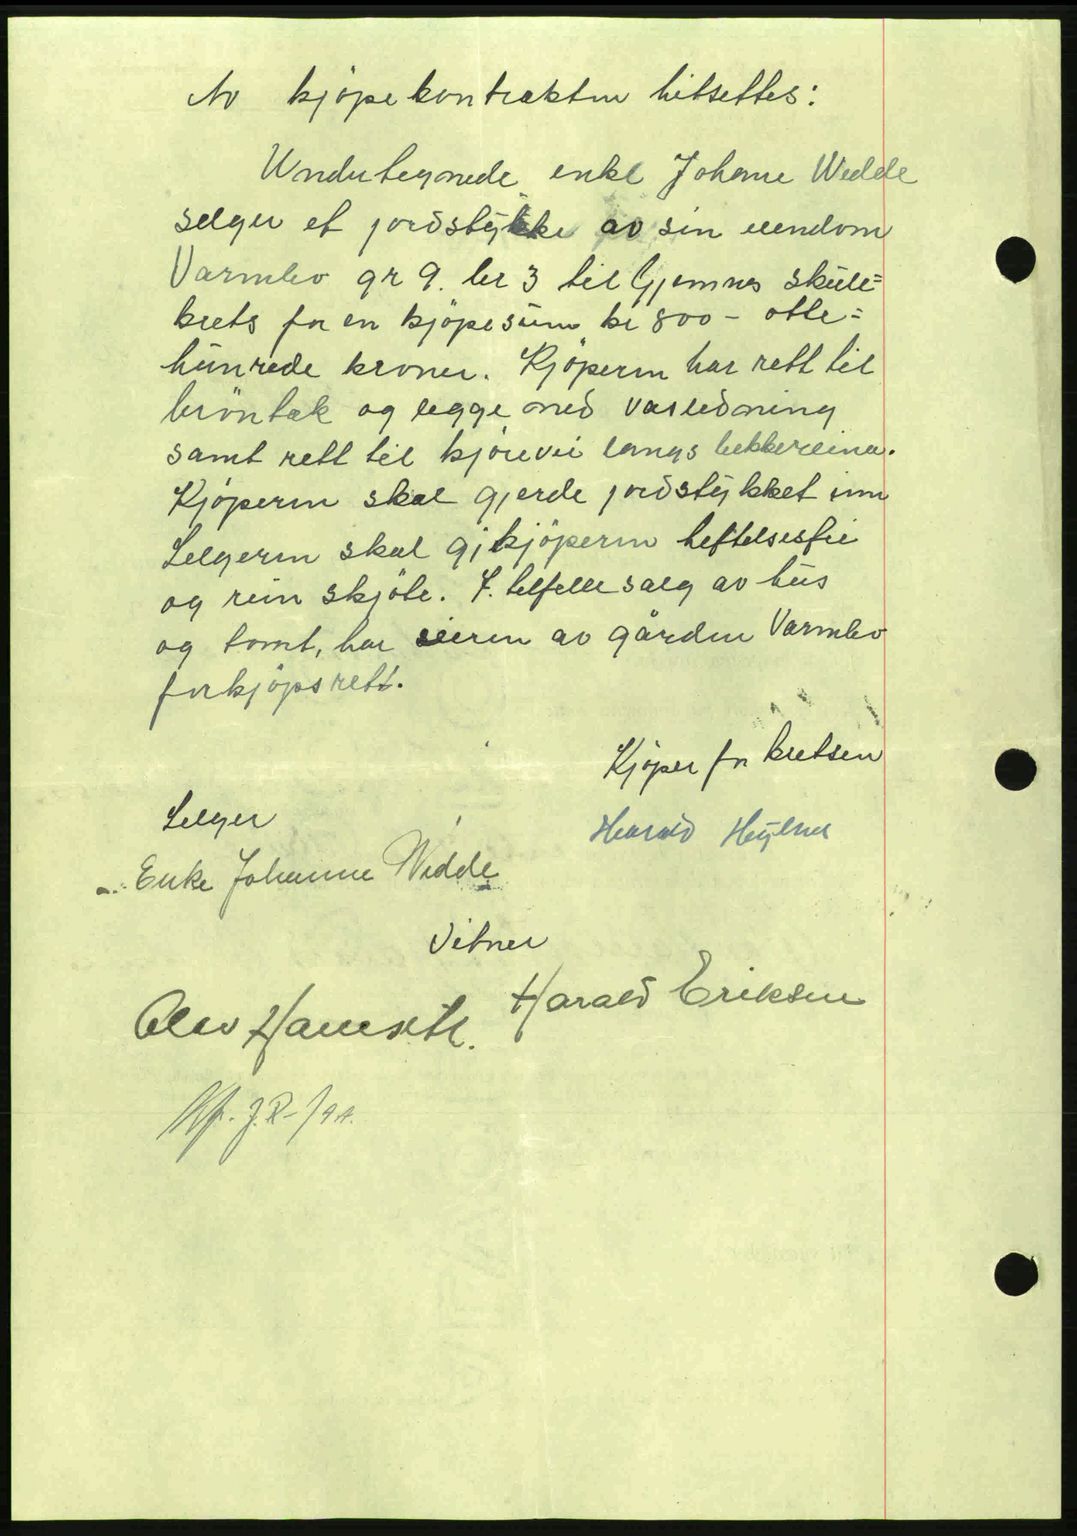 Av kjøpekontrakten hitsettes:
Undertegnede enke Johane Wedde
selger et jordstykke av sin eiendom
Varmbo gr 9. br 3 til Gjemnes skule=
krets for en kjøpesum kr 800 - otte=
hunrede kroner. Kjøperen har rett til
brøntak og legge ned vasledning
samt rett til kjørevei langs bekkereina.
Kjøperen skal gjerde jordstykket inn
Selgeren skal gi kjøperen heftelsesfri
og rein skjøte. I. tilfelle salg av hus
og tomt, har eieren av gården Varmbo
forkjøpsrett.
Kjøper for kretsen
Selger
Harald
Enke Johanne Wedde
Vitner
Harald Eriksen
Olav